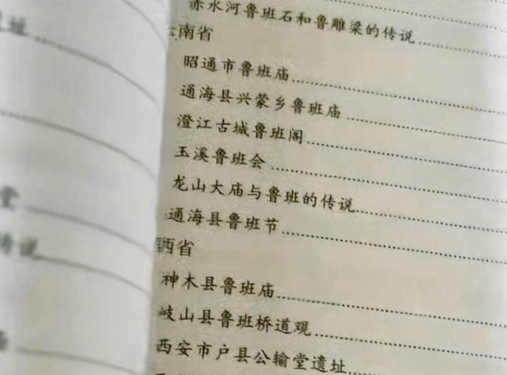 赤水河鲁班石和鲁雕梁的传说
云南省
昭通市鲁班庙
通海县兴蒙乡鲁班庙
澄江古城鲁班阁
玉溪鲁班会
龙山大庙与鲁班的传说
通海县鲁班节
西省
神木县鲁班庙
岐山县鲁班桥道观
西安市户县公输堂遗址